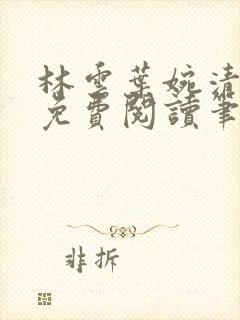 林雲葉婉清
免費閱讀筆
非拆